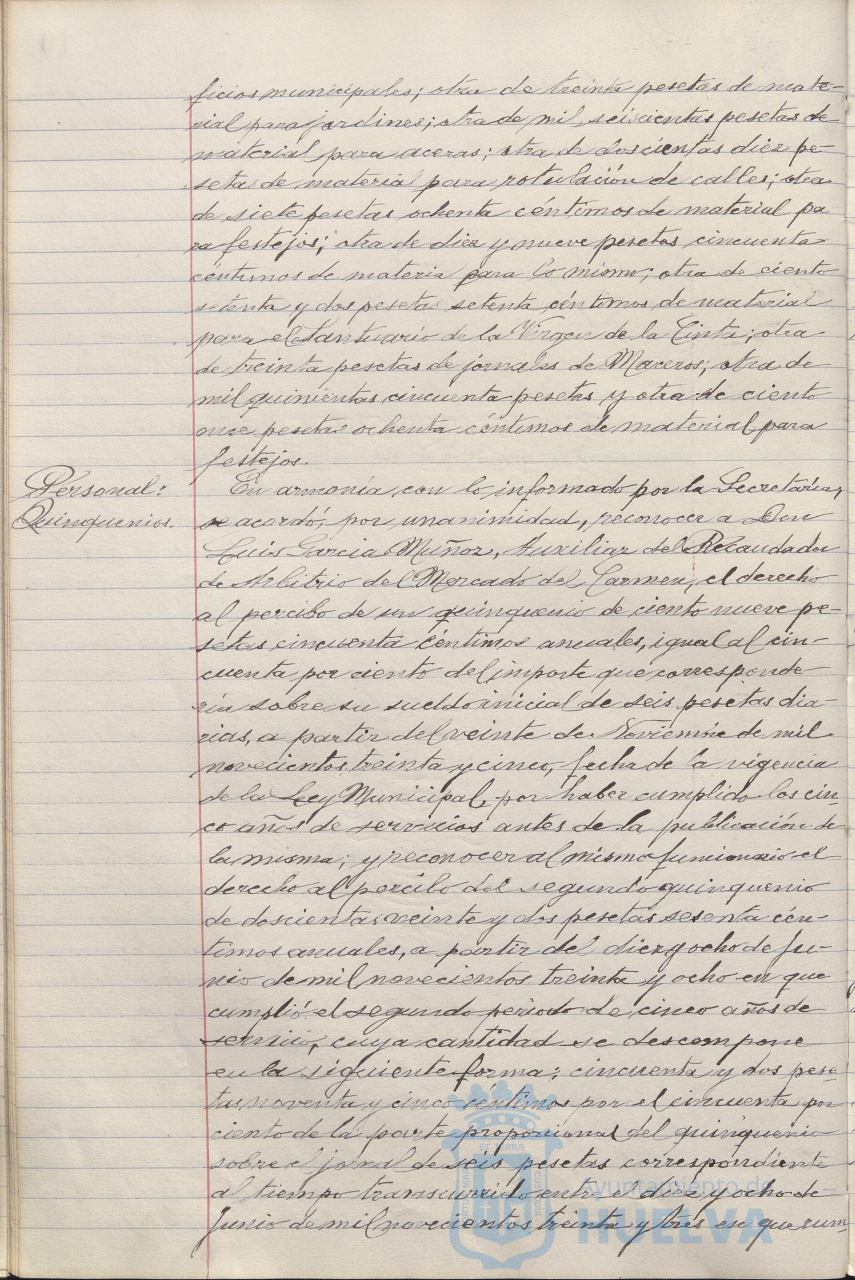 ficios municipales; otra de treinta pesetas de mate-
rial para jardines; otra de mil seiscientas pesetas de
material para aceras; otra de doscientas diez pe-
setas de material para rotulación de calles; otra
de siete pesetas ochenta céntimos de material pa
ra festejos; otra de diez y nueve pesetas cincuenta
céntimos de materia para lo mismo; otra de ciento
setenta y dos pesetas setenta céntimos de material
para el Santuario de la Virgen de la Cinta; otra
de treinta pesetas de jornales de Maceros; otra de
mil quinientas cincuenta pesetas y otra de ciento
once pesetas ochenta céntimos de material para
festejos.
Personal:
Quinquenios.
En armonía con lo informado por la Secretaría,
se acordó, por unanimidad, reconocer a Don
Luis Garcia Muñoz, Auxiliar del Recaudador
de Arbitrio del Mercado del Carmen, el derecho
al percibo de un quinquenio de ciento nueve pe-
setas cincuenta céntimos anuales, igual al cin-
cuenta por ciento del importe que corresponde-
ría sobre su sueldo inicial de seis pesetas dia-
rias, a partir del veinte de Noviembre de mil
novecientos treinta y cinco, fecha de la vigencia
de la Ley Municipal, por haber cumplido los cin-
co años de servicios antes de la publicación de
la misma; y reconocer al mismo funcionario el
derecho al percibo del segundo quinquenio
de doscientas veinte y dos pesetas sesenta cén-
timos anuales, a partir del diez y ocho de Ju-
nio de mil novecientos treinta y ocho en que
cumplió el segundo periodo de cinco años de
servicio, cuya cantidad se descompone
en la siguiente forma: cincuenta y dos pese-
tas noventa y cinco centimos por el cincuenta por
ciento de la parte proporcional del quinquenio
sobre el jornal de seis pesetas correspondiente
al tiempo transcurrido entre el diez y ocho de
Junio de mil novecientos treinta y tres en que cum-
Ayuntamiento de
HUELVA